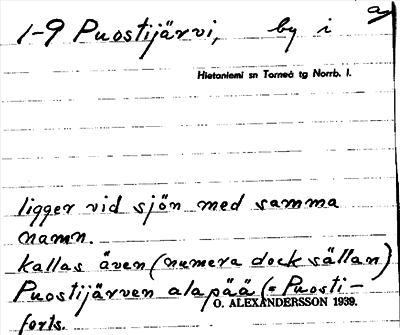 a
1-9 Puostijärvi, by i
Hietaniemi sn Torneå tg Norrb. l.
ligger vid sjön med samma
namn.
Kallas även (numera dock sällan)
Puostijärven alapää (= Puosti-
O. ALEXANDERSSON 1939.
forts.